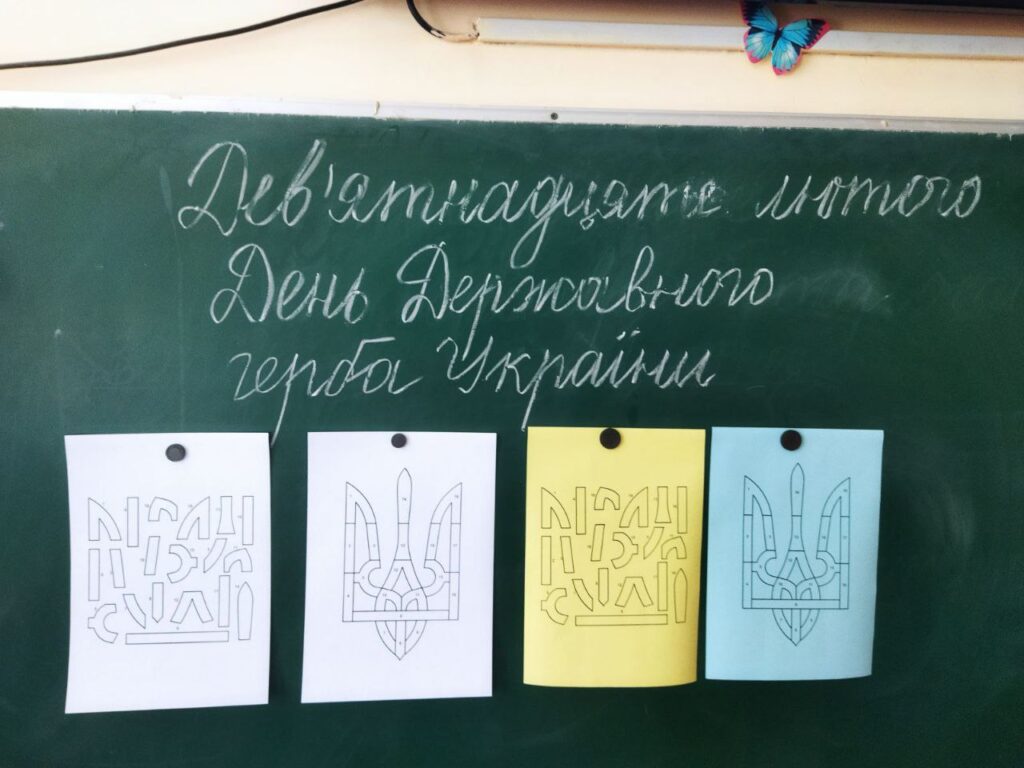 Дев'ятнадцяте лютого
День Державного
герба України